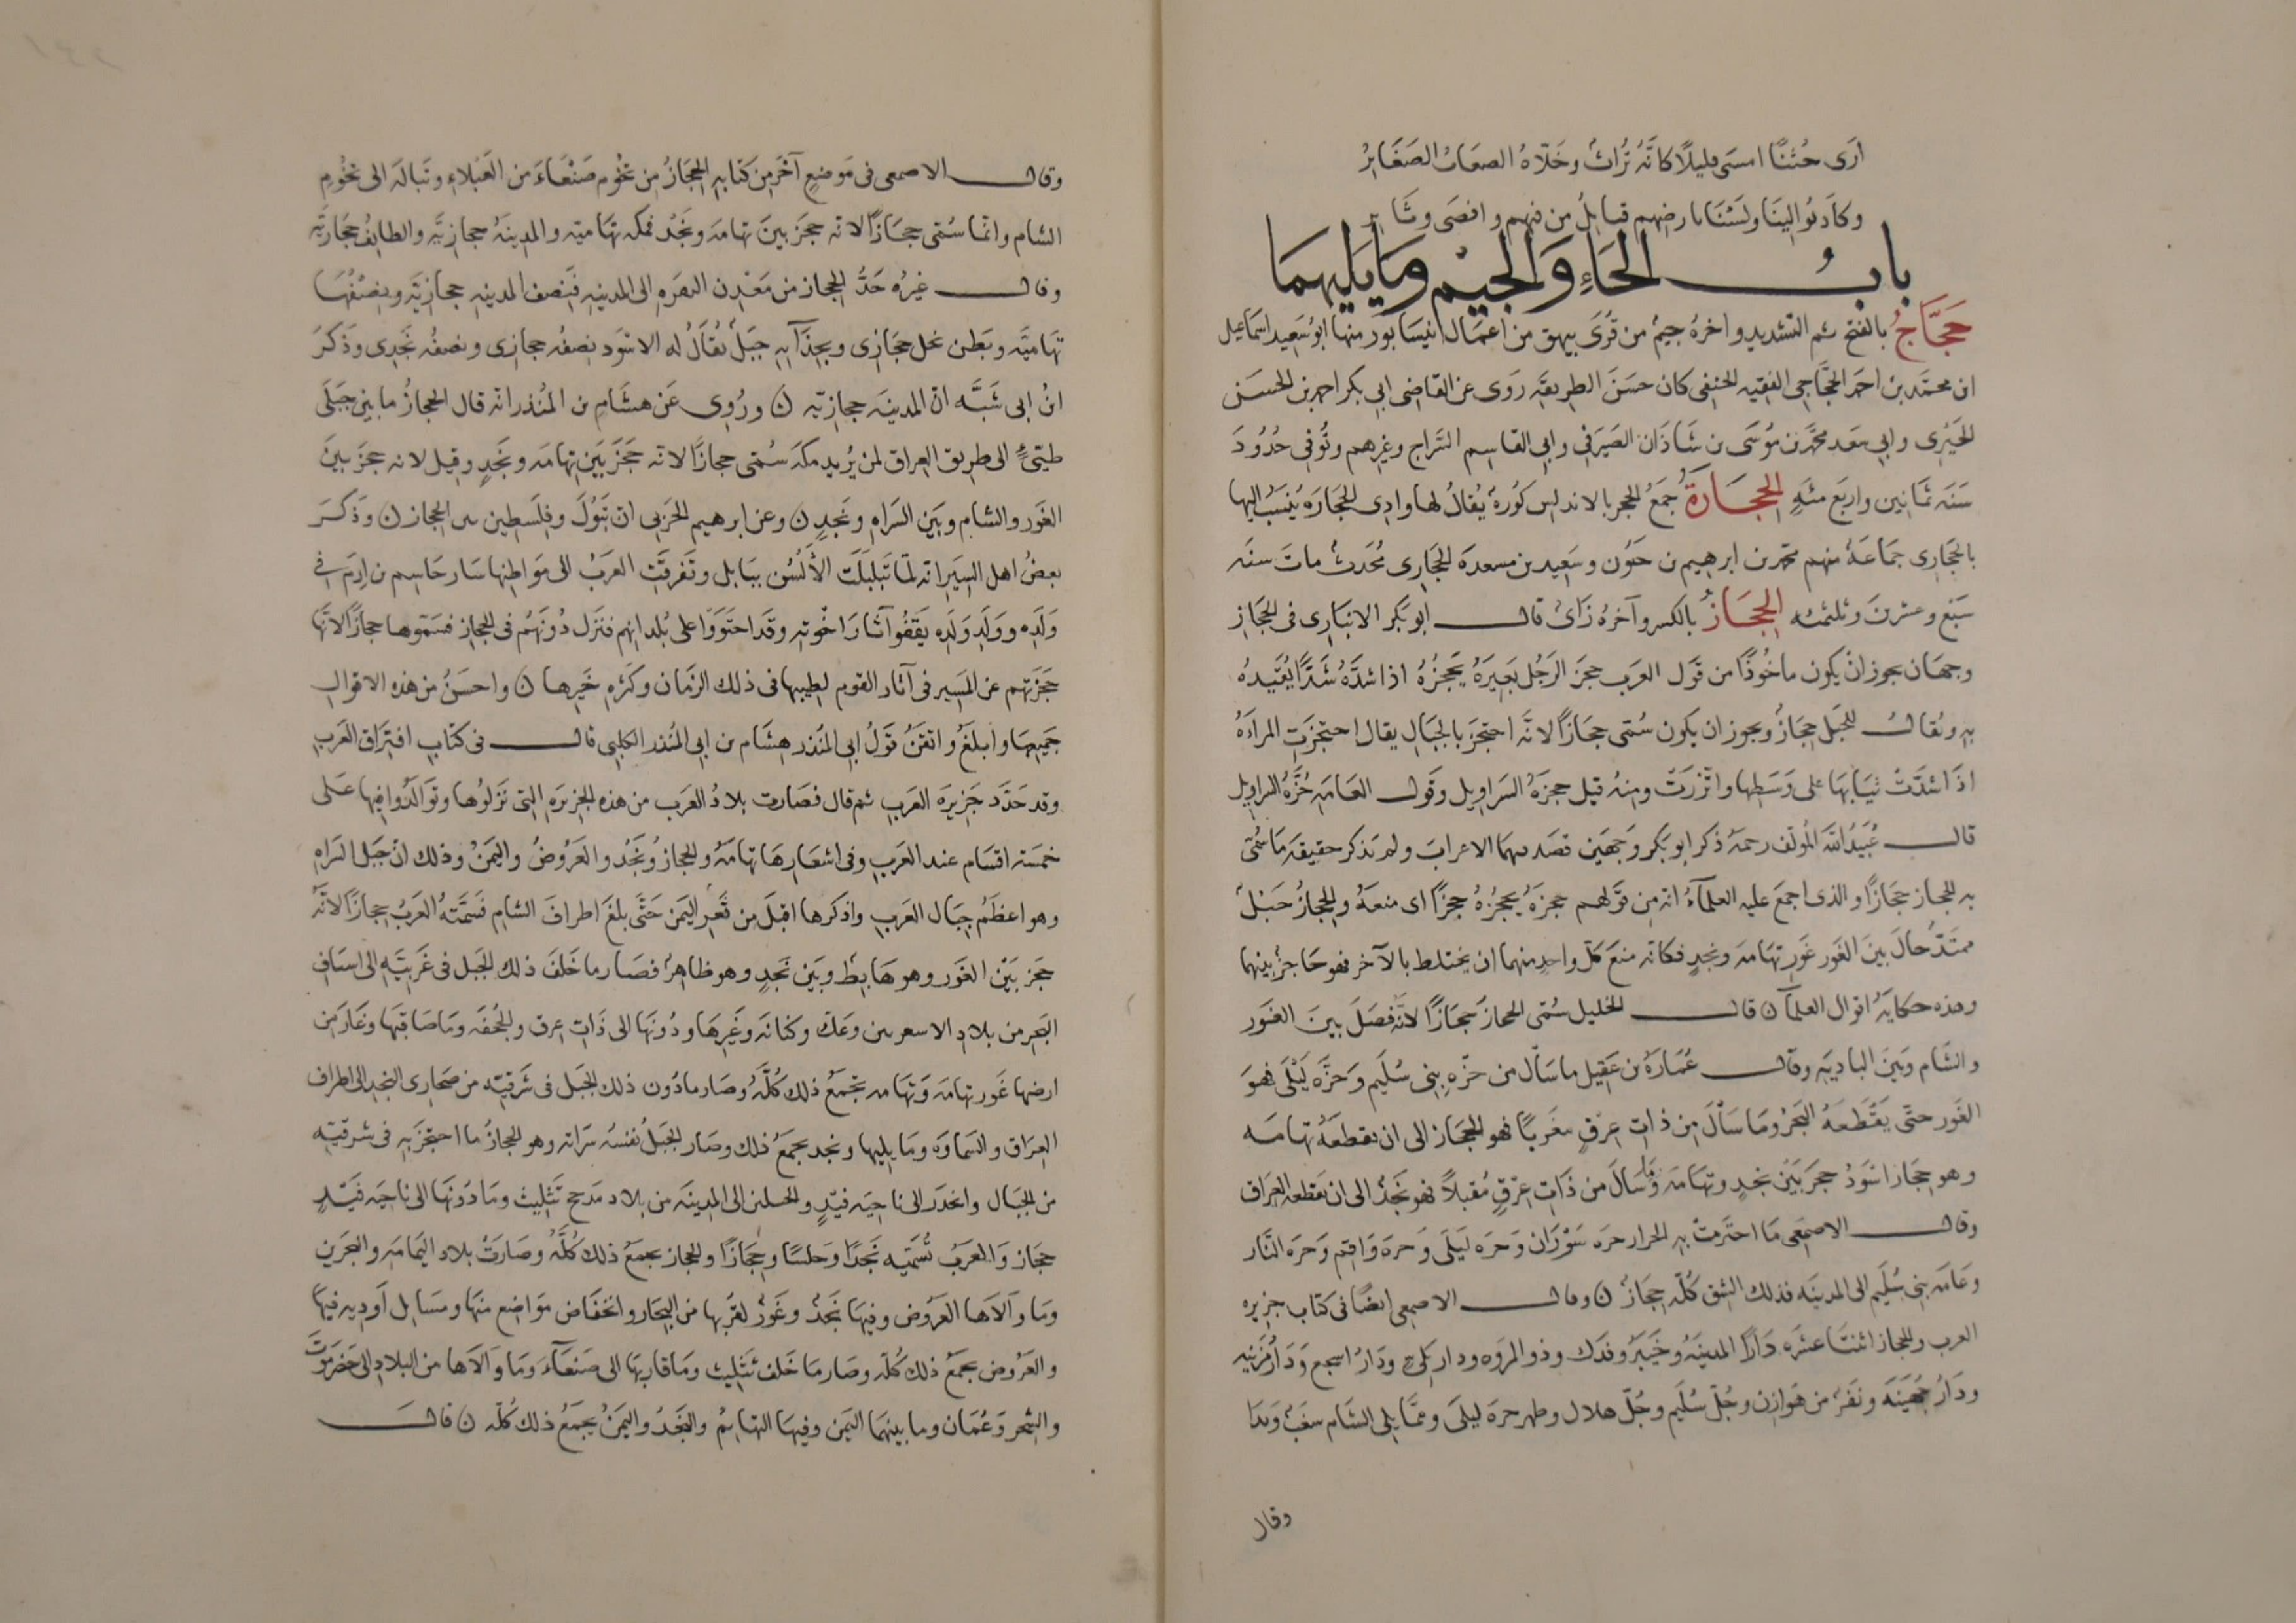 أرى حُثنًا امسى ذليلًا كأنّه تُراثٌ وخَلّاهُ الصعابُ الصعَابِرُ
وكادَ يُوالينا ولَسْنَا بارضهم قبايلُ من فهم وافصَى وثَابِر
بابُ الحَاءِ وَالجيْم وَمَا يَليهمَا
حَجَّاجُ بالفتح ثم التشديد واخرهُ جيمٌ من قُرَى بيهق من اعمال نيسابور منها ابو سَعِيد اسماعيل
ابن محمّد بن احمد الحجّاجي الفقيه الحنفي كان حسَنَ الطريقَه رَوى عن القاضى ابي بكر احمد بن الحسَن
الحِيْرى وابي سعد محمّد بن مُوسَى بن شاذَان الصَيرَفي وابى القاسم السَّراج وغيرهم وتُوُفى حُدُودَ
سَنَه ثمَانِين واربَع مئهِ الحِجَارَةُ جمَعُ الحجر بالاندلس كُورهٌ يُقالُ لها وادى الحجَارَه يُنسَبُ اليها
بالحجَارِى جمَاعَهٌ منهم محمد بن ابرهيم بن حَيّون وسَعِيد بن مسعدَه الحجَارِى مُحَدثٌ ماتَ سنَه
سَبْع وعشرينَ وثلثمئه الحِجَازُ بالكسر وآخرهُ زَاىٌ قال ابو بَكر الانبَارِى فى الحجَازِ
وجهَان يجوز انْ يكون ماخُوذًا من قَول العرَب حجزَ الرَجُل بَعِيرَهُ يَحجزُهُ اذا شدَّهُ شَدًّا يُقيّدهُ
بهِ ويُقالُ للحَبَل حِجَازٌ ويجوز ان يكون سُمّى حجَازًا لانَّه احتجزَ بالجبَالِ يقال احتجزَتِ المراَهُ
اذَا شدَّتْ ثيَابهَا على وَسَطِها واتّزرَتْ ومنهُ قيل حجزَهُ السَراويل وقَول العَامَهِ حُزَّهُ السراويل
قال عُبَيدُ اللّه المؤلّف رحمَهُ ذكر ابو بَكر وَجهَين قصَد بهما الاعرابَ ولم يَذكر حقيقَه مَا سُمّى
به الحجاز حِجَازًا والذى اجمَعَ عليه العلمآءُ انه مِن قَولهم حجزَهُ يَحجُزهُ حجزًا اى منعَهُ والحِجَازُ جَبَلٌ
ممتَدٌّ حالَ بينَ الغَور غَورِ تهَامَه ونجدٍ فكانه منَعَ كلَّ واحدٍ منهما ان يختلط بالآخر فهو حَاجزٌ بينهما
وهذه حكايَهُ اقوال العلمآ ن قال الخليل سُمّى الحجاز حِجَازًا لانّهُ فصَلَ بينَ الغَور
والشَام وبَيْنَ الباديَهِ وقَال عُمَارَهُ بن عَقِيل ما سَالَ من حَرّهِ بنى سُلَيم وَحَرَّه لَيْلَى فهوَ
الغَور حتّى يَقْطَعَهُ البَحرُ ومَا سَالَ مِن ذاتِ عِرْقٍ مغَربًا فهو الحجَاز الى ان تقطعَهُ تهَامَه
وهو حِجَاز اسْوَدُ حجزَ بَيْنَ نجدٍ وتهَامَه وَمَا سَالَ من ذَاتِ عِرْقٍ مُقبلًا فهو نَجْدٌ الى ان يقطعه العِرَاق
وقال الاصمَعى مَا احتَزمتْ بهِ الحرار حرَه شَوْرَان وَحَرَه لَيلَى وَحرَه وَاقِم وَحَرَه النَّار
وعَامَه بنى سُلَيم الى المدينَه فذلك الشق كُلّه حِجَازٌ ن وقال الاصمعى ايضًا فى كتَاب جزيره
العرب والحجاز اثنتَا عشَره دَارًا المدينَهُ وخَيبَرُ وفدَك وذو المروَه ودار بَلىّ ودَارُ اشجع وَدَارُ مُزينَه
ودَارُ جُهَينَه ونفَرٌ من هَوازِن وجُلّ سُلَيم وجُلّ هلال وظهر حرَه ليلَى وممَّا يلى الشَام شَغْبٌ وَبَدَا
وقال
وقال الاصمعى فى مَوضعٍ آخَر مِن كتَابهِ الحِجَازُ مِن تخُوم صَنْعَاءَ من العَبْلاءِ وتَبالَه الى تخُومِ
الشام وانّما سُمّى حجَازًا لانه حجَز بينَ تهامَه ونَجْد فمكه تهَاميّه والمدينَهُ حجازِيّه والطايفُ حجَازيّه
وقال غيرُه حَدُّ الحجاز من مَعْدِن النقرَه الى المدينهِ فنِصفُ المدينهِ حجازِيّه ونِصْفُهَا
تهَاميَّه وبَطن نخل حجَازى وبحذآيهِ جبَلٌ يقَالُ له الاسْوَد نِصفُه حجازى ونصفُه نَجْدى وَذكَرَ
ابنُ ابى شَبَّه انّ المدينَه حجازيّه ن ورُوِى عَن هشَام بن المنُذر انه قال الحجازُ ما بين جَبَلَى
طيّئٍ الى طريق العراق لمن يُريد مكهَ سُمّى حجازًا لانه حَجَزَ بَين تهامَه ونَجدٍ وقيل لانه حجزَ بينَ
الغَور والشام وبَيْن السَراهِ ونَجدٍ ن وعن ابرهيم الحَربى ان تَبُوك وفِلَسطين من الحجاز ن وَذكَرَ
بعضُ اهل السِيَرِ انه لمّا تَبلبَلَت الأَلسُن ببَابل وتَفرقَتِ العرَبُ الى مَواطِنها سَار حَاسِم بن اِرَم فى
وَلَدِه ووَلَدِ وَلَدِه يَقْفُو آثَارَ اخْوتهِ وقَد احتَوَوا على بُلدانهم فنَزل دُونَهُم فى الحجازِ فسَمّوها حجازًا لانّها
حجَزتهم عن المَسِير فى آثار القوم لطيبها فى ذلك الزمَان وكثرهِ خَيرها ن واحسَنُ من هذه الاقوالِ
جَميعها وابلَغُ واتقَنُ قَولُ ابى المنُذر هِشَام بن ابى المنُذر الكلبى قال فى كتَابِ افتِرَاق العَربِ
وقد حَدَّد جَزِيرَه العَربِ ثم قال فصَارت بلادُ العَرَب من هذه الجزيرَه التى نَزلُوها وتوَالَدُوا فيها عَلى
خمسَه اقسَام عند العَربِ وفى اشعَارِهَا تهامَهُ والحجازُ ونَجْدُ والعَرُوضُ واليمَنُ وذلك انّ جَبَل السَراهِ
وهو اعظَمُ جبَال العَرب واذكرها اقبلَ من قَعرِ اليَمن حَتَّى بلغَ اطرافَ الشام فَسَمَّتهُ العَرَبُ حِجازًا لانّهُ
حجَز بَيْنَ الغَور وهو هَابِطٌ وبَين نَجدٍ وهو ظاهِرٌ فصَار ما خَلفَ ذلك الجبل فى غَربيّهِ الى اسيَاف
البَحر من بلادِ الاشعريين وعَكّ وكنانَه وغَيرهَا ودُونَها الى ذَاتِ عِرق والجُحفَه ومَا صَاقبَهَا وغَارَ مِن
ارضها غَور تهامَه وَتهَامه تجَمَعُ ذلك كُلَّهُ وصَار ما دُون ذلك الجبَل فى شَرقيّه من صَحارِى النجد الى اطراف
العِرَاق والسَماوَه ومَا يليها ونجد يجمَعُ ذلك وصَار الجَبَلُ نفسُه سَراته وهو الحجازُ ما احتجزَ بهِ فى شرقيّهِ
من الجبَال وانحَدَر الى نَاحيَه فيدٍ والجبلين الى المدينَه من بلاد مَدحج تَثلِيث ومَا دُونهَا الى ناحيَه فَيْدٍ
حجَاز وَالعَربُ تُسَمّيه نَجْدًا وَجَلسًا وحِجَازًا والحجاز يجمَعُ ذلك كُلَّهُ وصَارتْ بلاد اليَمامَه والبَحرَين
ومَا وَالاهَا العَرُوض وفيهَا نَجْدٌ وغَوْرٌ لقُربها من البِحَار وانخفَاض مَوَاضِع منهَا ومسَايل اَوديه فيهَا
والعَرُوض يجمَعُ ذلك كُلّه وصَار مَا خَلفَ تَثلِيث ومَا قاربهَا الى صَنعَآءَ ومَا وَالاهَا من البلادِ الى حَضرَمَوتَ
والشِحر وَعُمَان وما بينهَا اليَمن وفيهَا التهَايمُ والنجَدُ واليمَنُ يجمَعُ ذلك كُلّه ن قال